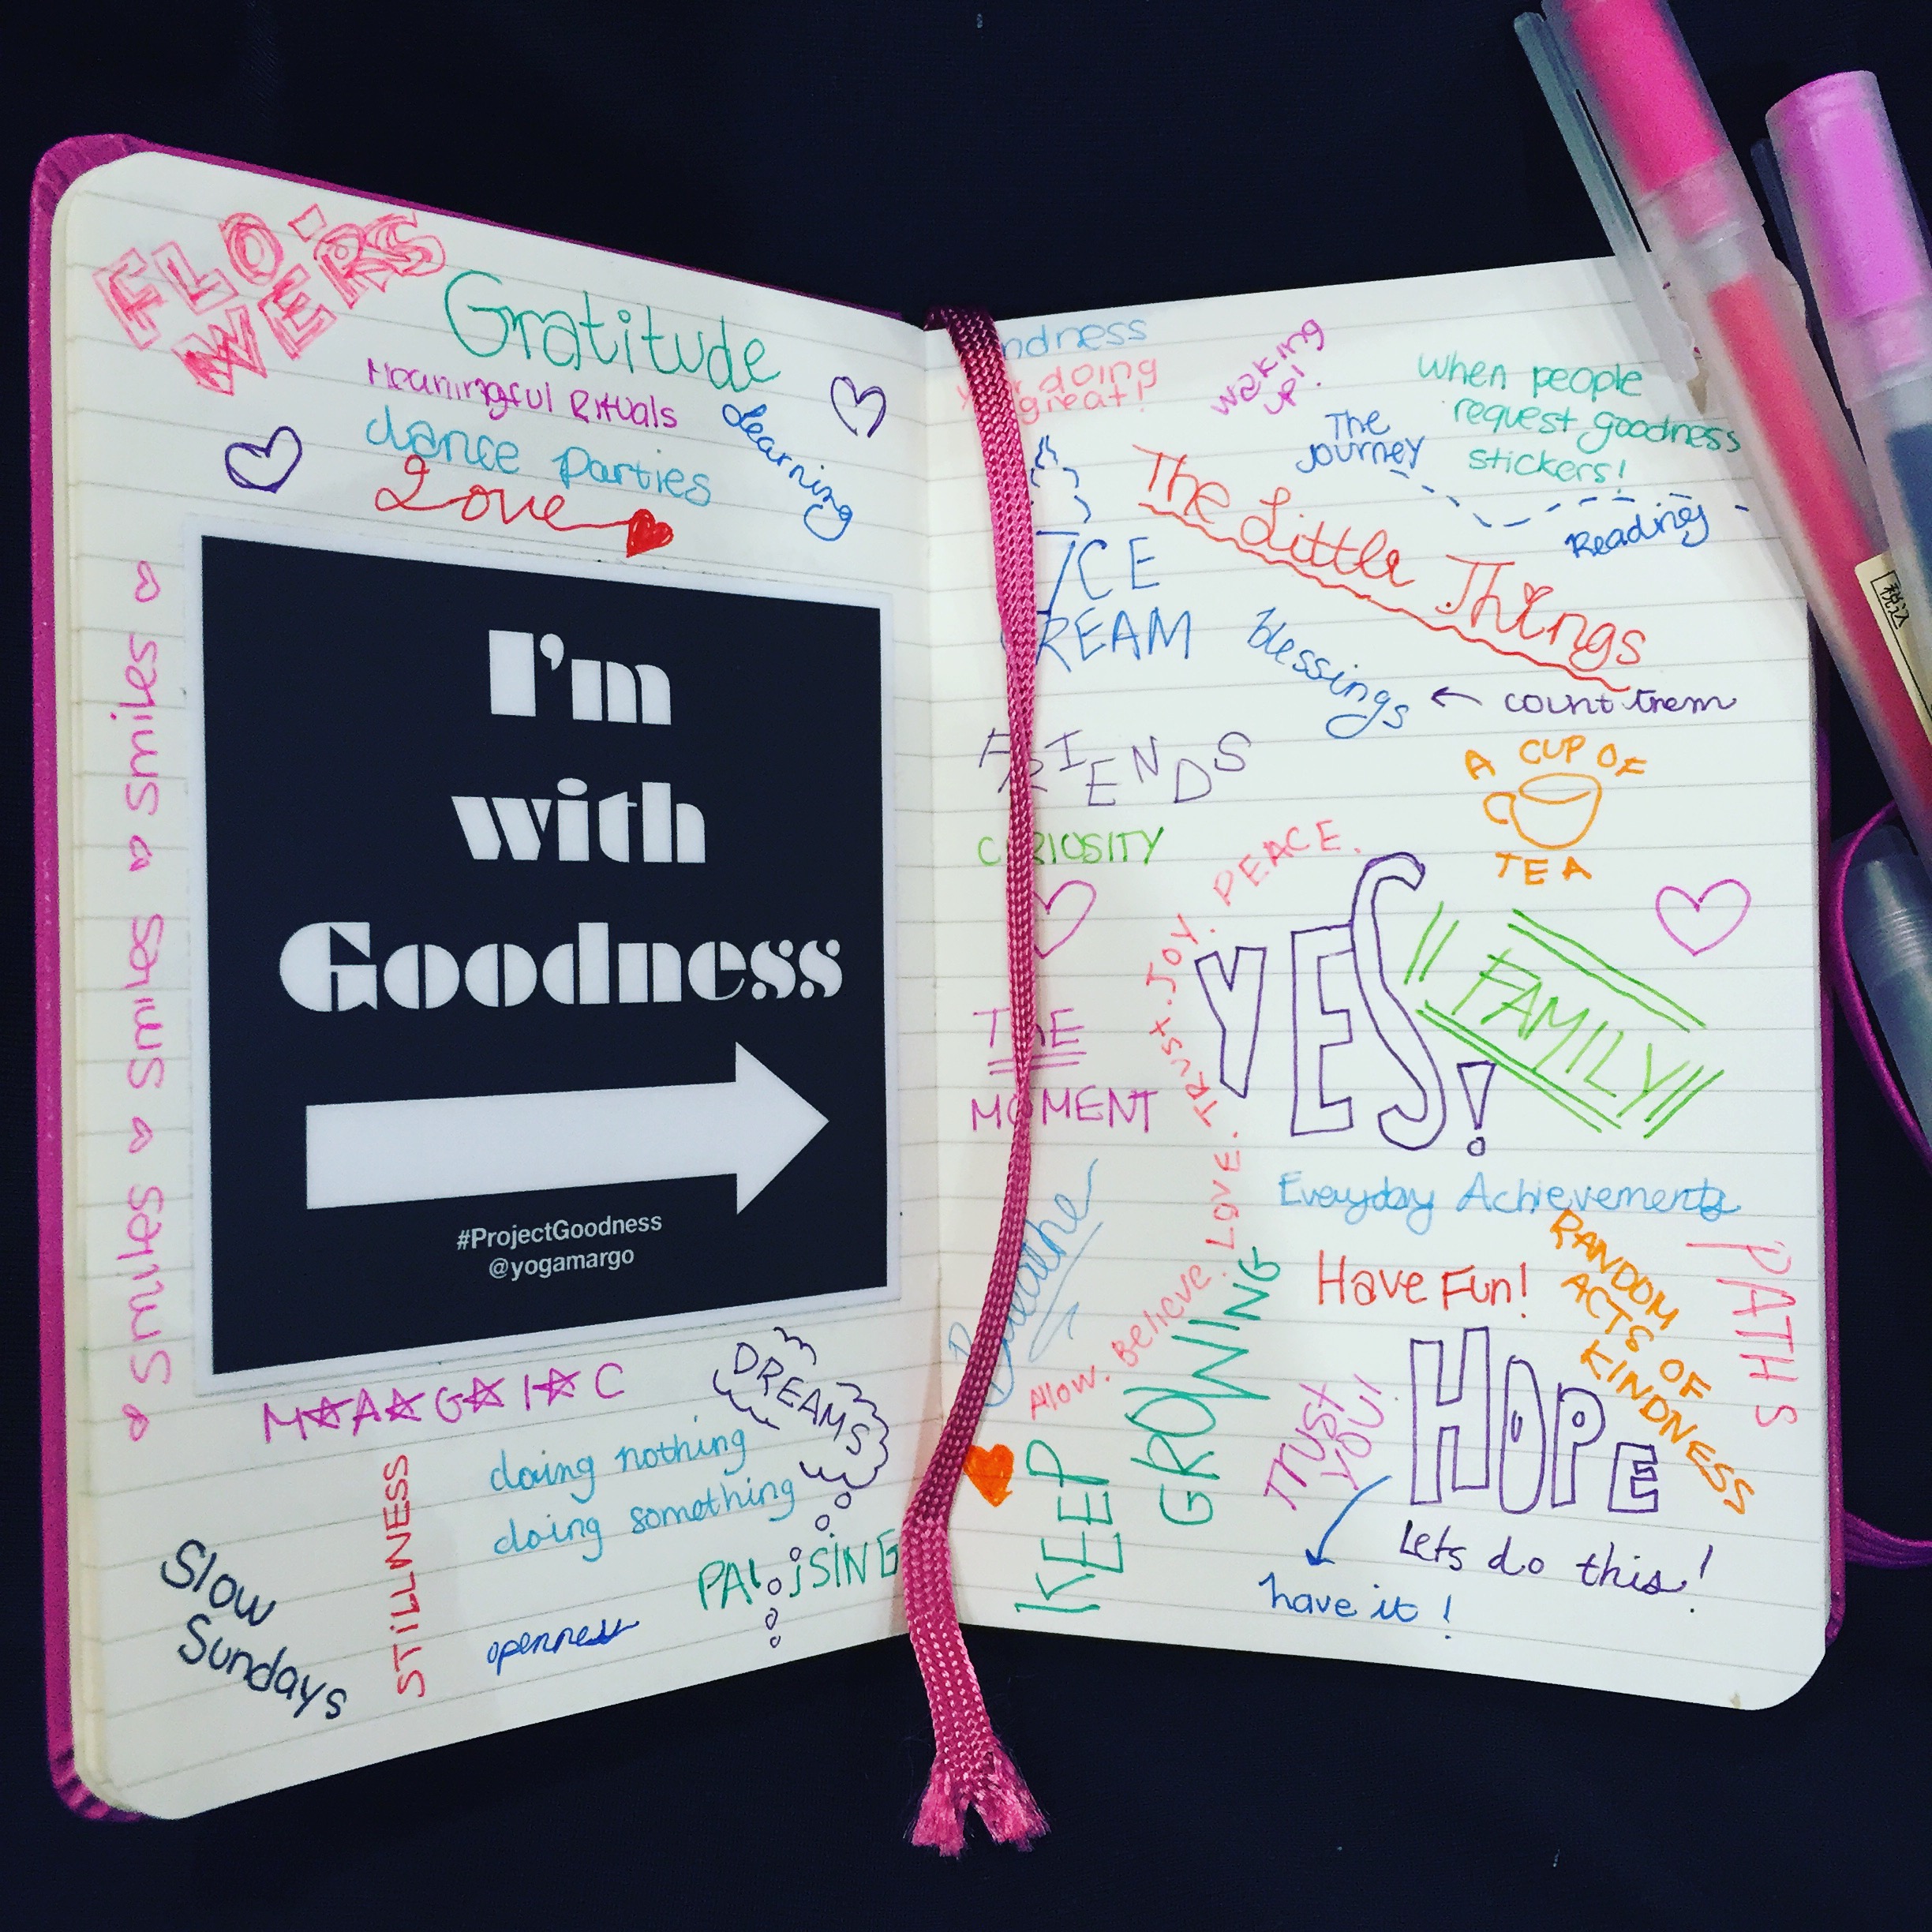 FLO'RS
WERS
Gratitude
Meaningful Rituals
dance parties
Learning
Love
Smiles Smiles Smiles Smiles
I'm
with
Goodness
#ProjectGoodness
@yogamargo
MAGIC
DREAMS
doing nothing
doing something
STiLLNESS
Slow
Sundays
openness
PAUSiNG
ndness
doing
great!
waking
up!
The
Journey
When people
request goodness
stickers!
Reading
The Little Things
ICE
REAM
blessings
← count them
FRIENDS
A CUP OF
TEA
CURIOSITY
THE
MOMENT
Allow. Believe. LOVE. TRUST. JOY. PEACE.
YES!
FAMILY
Breathe
Everyday Achievements
Have Fun!
RANDOM
ACTS OF
KINDNESS
PATHS
KEEP
GROWING
TRUST
YOU!
HOPE
have it!
Lets do this!
税込